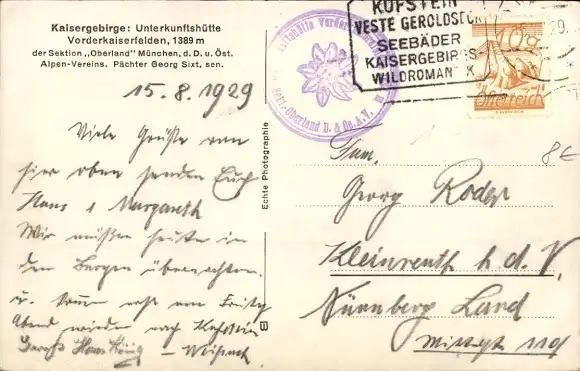 Kaisergebirge: Unterkunftshütte
Vorderkaiserfelden, 1389 m
der Sektion „Oberland" München, d. D. u. Öst.
Alpen-Vereins. Pächter Georg Sixt, sen.
15.8.1929
Viele Grüße von
hier oben senden Euch
Hans & Margareth
Wir müssen heute in
den Bergen übernachten.
u. kommen erst am
Abend wieder nach Kufstein
Echte Photographie
Sekt. Oberland D. & Oe. A. V.
KUFSTEIN
VESTE GEROLDSECK
SEEBÄDER
KAISERGEBIRGS-
WILDROMANTIK
10 g
Österreich
8€
Fam.
Georg Roder
Kleinreuth h. d. V.
Nürnberg Land